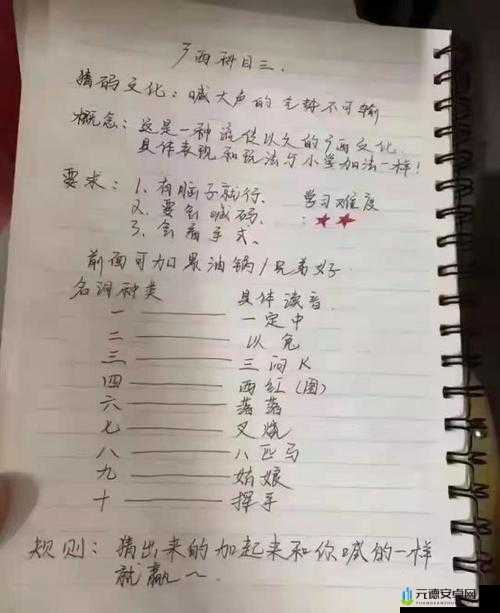 广西科目三.
猜码文化：喊大声的气势不可输
概念：这是一种流传以久的广西文化.
具体表现和玩法与小学加法一样！
要求：1、有脑子就行、
2、要会喊码、
3、会看手式、
学习难度
：★★
前面可加果油锅/兄弟好.
名词种类 具体读音
一 —— 一定中
二 —— 以免
三 —— 三闷K
四 —— 西红(图)
六 —— 落落
七 —— 叉烧
八 —— 八匹马
九 —— 姑娘
十 —— 挥手
规则：猜出来的加起来和你喊的一样
就赢～
元德安卓网